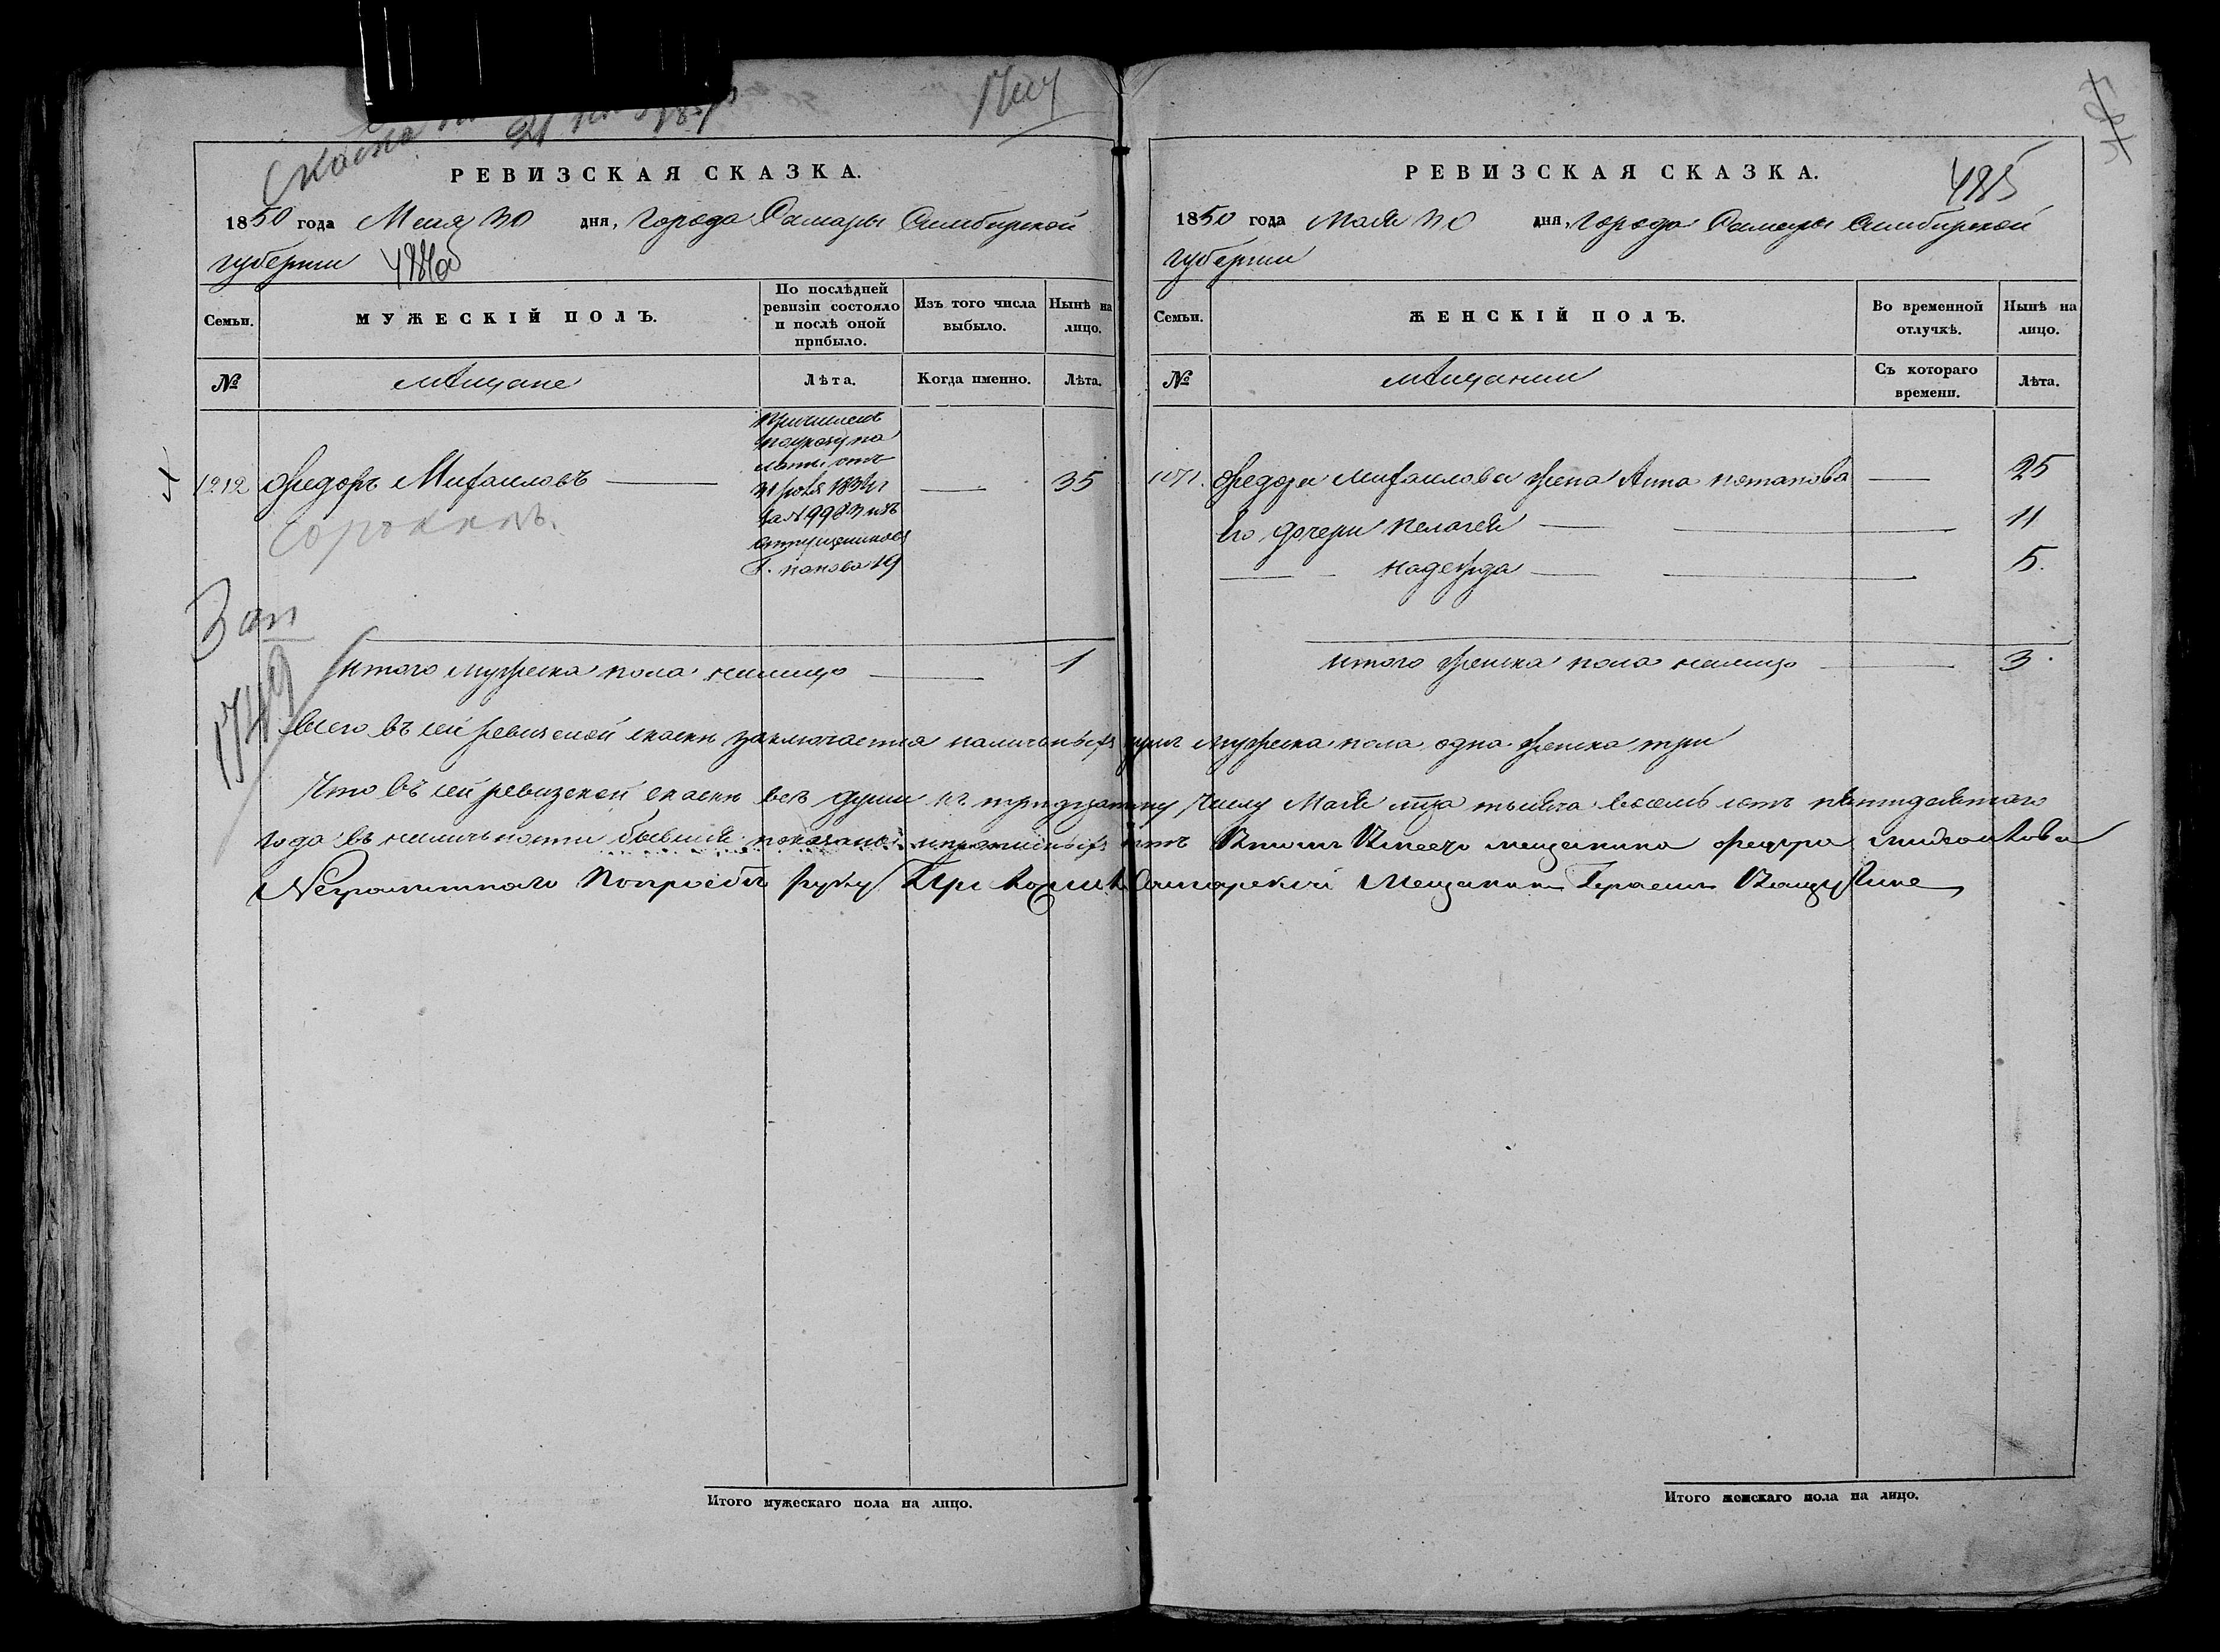 Сказка
РЕВИЗСКАЯ СКАЗКА.
1850 года Мая 30 дня, Города Самары Симбирской
губернии 484об
Семьи.
МУЖЕСКІЙ ПОЛЪ.
По послѣдней
ревизіи состояло
и послѣ оной
прибыло.
Изъ того числа
выбыло.
Нынѣ на
лицо.
№
мѣщане
Лѣта.
Когда именно.
Лѣта.
Причисленъ
по указу па
латы отъ
31 1834 г
за № 9983 изъ
отпущенниковъ
Г. Попова 19
1212 Федоръ Михаиловъ 35
Сорокинъ.
Зап
1749
итого мужеска пола налицо 1
РЕВИЗСКАЯ СКАЗКА.
485
1850 года Мая 30 дня, Города Самары Симбирской
губернии
Семьи.
ЖЕНСКІЙ ПОЛЪ.
Во временной
отлучкѣ.
Нынѣ на
лицо.
№
мѣщанки
Съ котораго
времени.
Лѣта.
Федора Михаилова жена Анна Потапова 25
Его дочери Пелагея 11
Надежда 5.
итого женска пола налицо 3.
Всего въ сей ревизской скаски заключается наличныхъ душъ мужеска пола одна женска три
Что въ сей ревизской скаски всѣ души къ тридцатому числу Мая мца тысяча восемь сотъ пятидесятаго
года въ наличности бывшия показаны и прописныхъ нѣтъ Втомъ Вместо мещанина федора михаилова
Неграмотнаго Попросбѣ руку Приложилъ Самарский Мещанин Герасим
Итого мужескаго пола на лицо.
Итого женскаго пола на лицо.